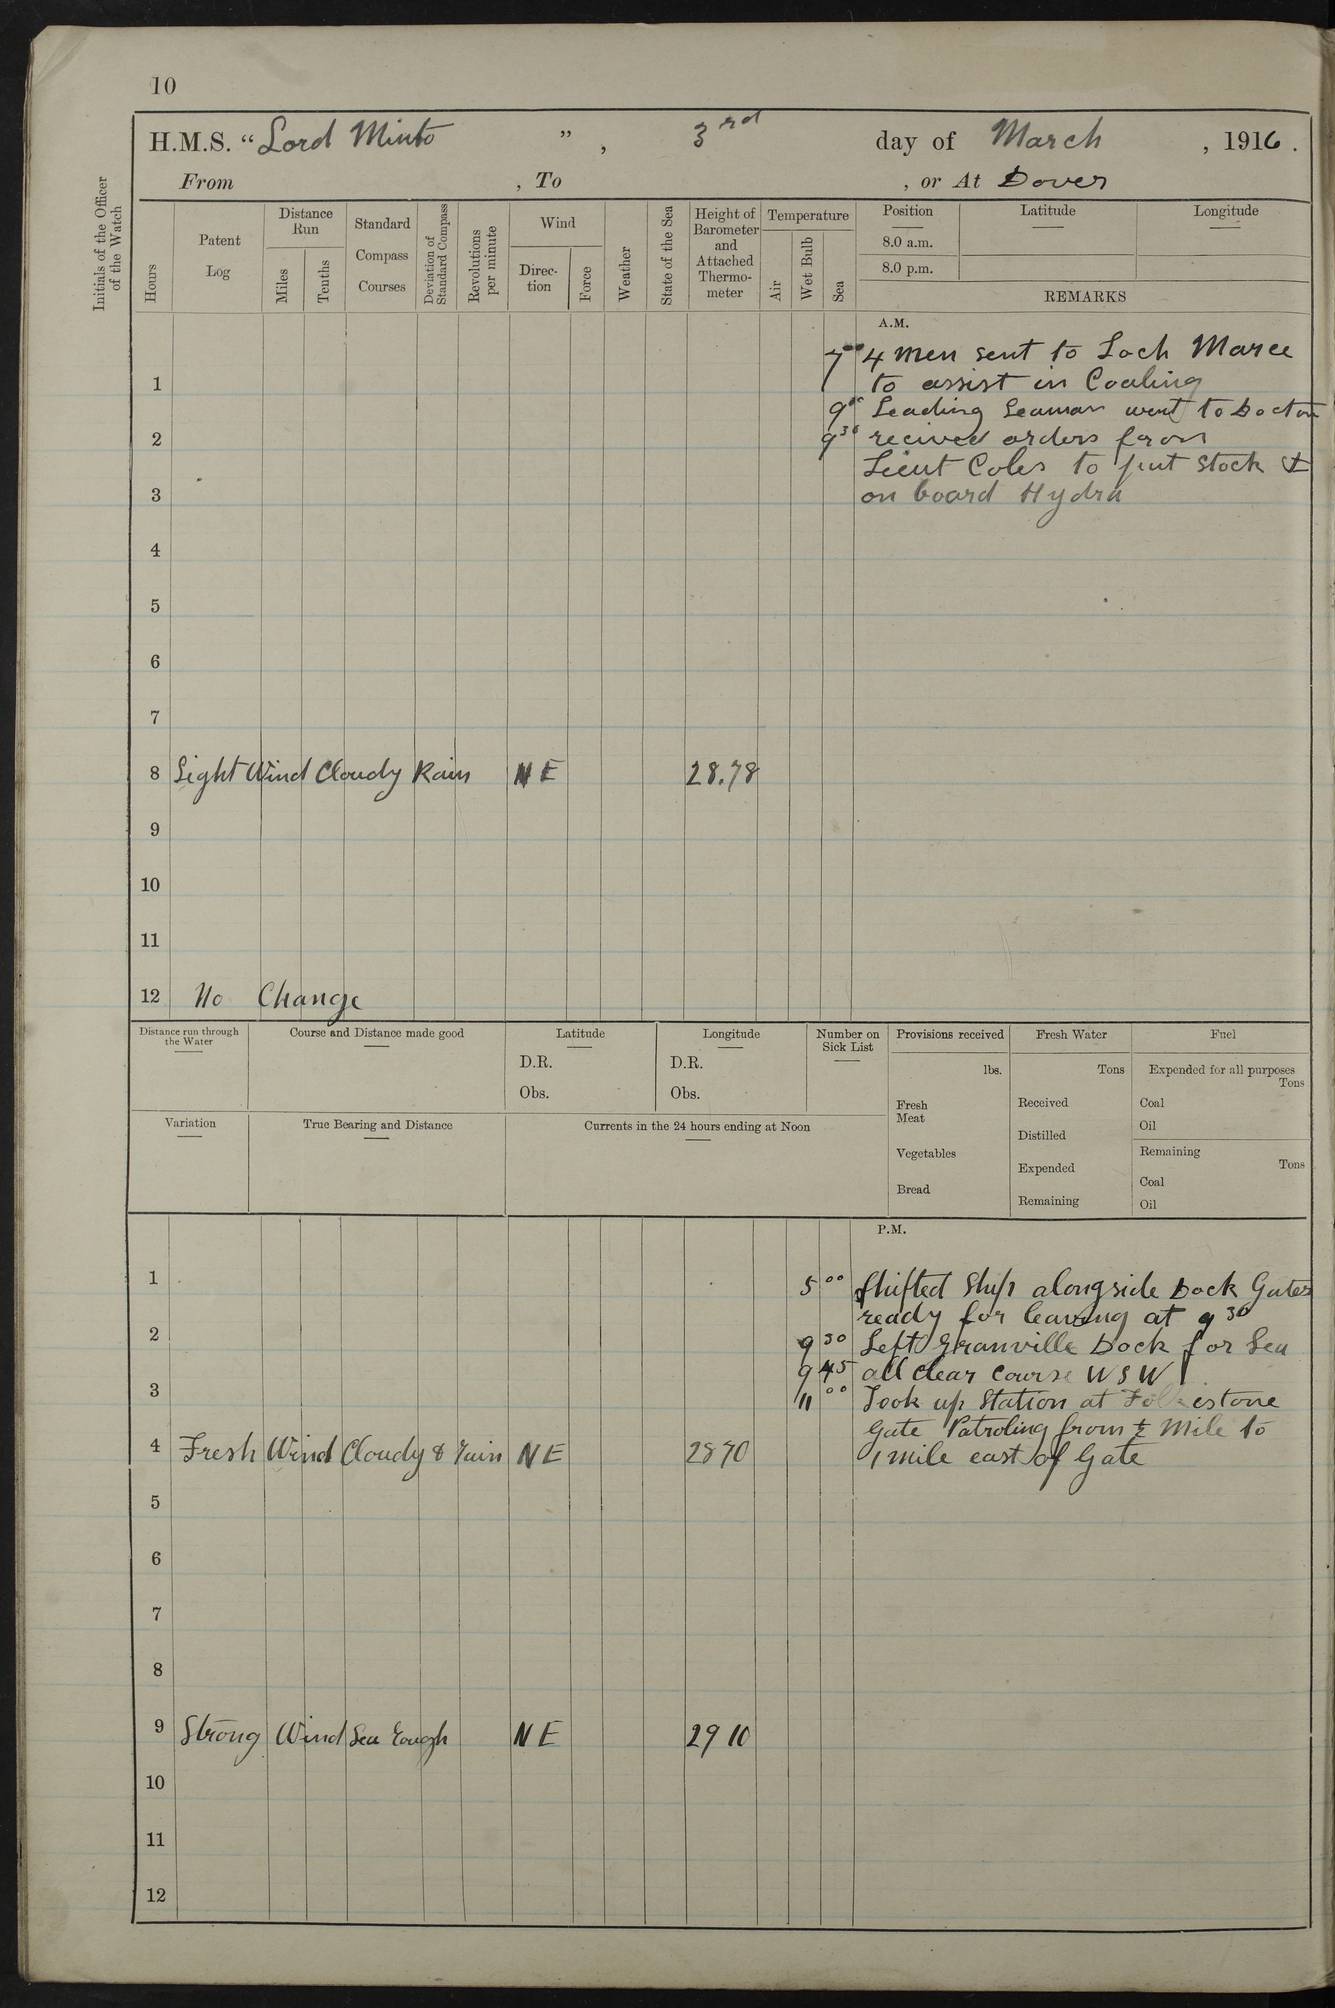 10
H.M.S. “Lord Minto ”, 3rd day of March, 1916.
From , To , or At Dover
Initials of the Officer of the Watch
Hours
Patent Log
Distance Run
Miles
Tenths
Standard Compass Courses
Deviation of Standard Compass
Revolutions per minute
Wind
Direc-tion
Force
Weather
State of the Sea
Height of Barometer and Attached Thermo-meter
Temperature
Air
Wet Bulb
Sea
Position
Latitude
Longitude
8.0 a.m.
8.0 p.m.
REMARKS
A.M.
7 00 4 men sent to Loch Maree
1 to assist in Coaling
9 00 Leading Seaman went to Doctor
2 9 30 recived orders from
Lieut Coles to put Stock
3 on board Hydra
4
5
6
7
8 Light Wind Cloudy Rain NE 28.78
9
10
11
12 No Change
Distance run through the Water
Course and Distance made good
Latitude
D.R.
Obs.
Longitude
D.R.
Obs.
Number on Sick List
Provisions received
lbs.
Fresh Meat
Vegetables
Bread
Fresh Water
Tons
Received
Distilled
Expended
Remaining
Fuel
Expended for all purposes
Tons
Coal
Oil
Remaining
Tons
Coal
Oil
Variation
True Bearing and Distance
Currents in the 24 hours ending at Noon
P.M.
1 5 00 Shifted Ship alongside Dock Gates
ready for leaving at 9 30
2 9 30 Left Granville Dock for Sea
9 45 all clear course WSW
3 11 00 Took up Station at Folkestone
Gate Patroling from ½ Mile to
4 Fresh Wind Cloudy & rain NE 2870 1 mile east of Gate
5
6
7
8
9 Strong Wind Sea rough NE 29 10
10
11
12